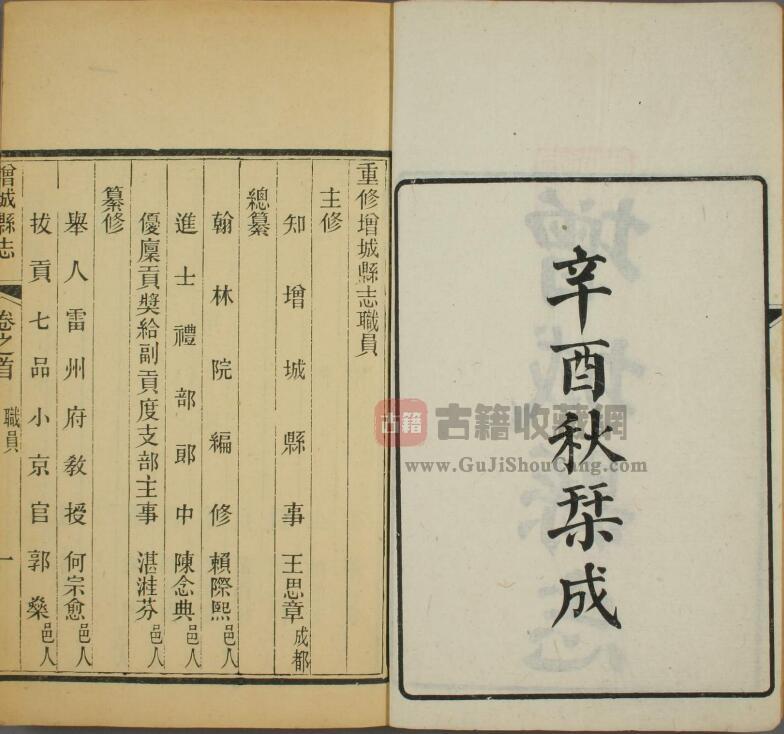 辛酉秋栞成
重修增城縣志職員
主修
知增城縣事 王思章 成都
總纂
翰林院編修 賴際熙 邑人
進士禮部郎中 陳念典 邑人
優廩貢獎給副貢度支部主事 湛淮芬 邑人
纂修
舉人雷州府敎授 何宗愈 邑人
拔貢七品小京官 郭燊 邑人
增城縣志 卷之首 職員 一
古籍 古籍收藏網
www.GuJiShouCang.com